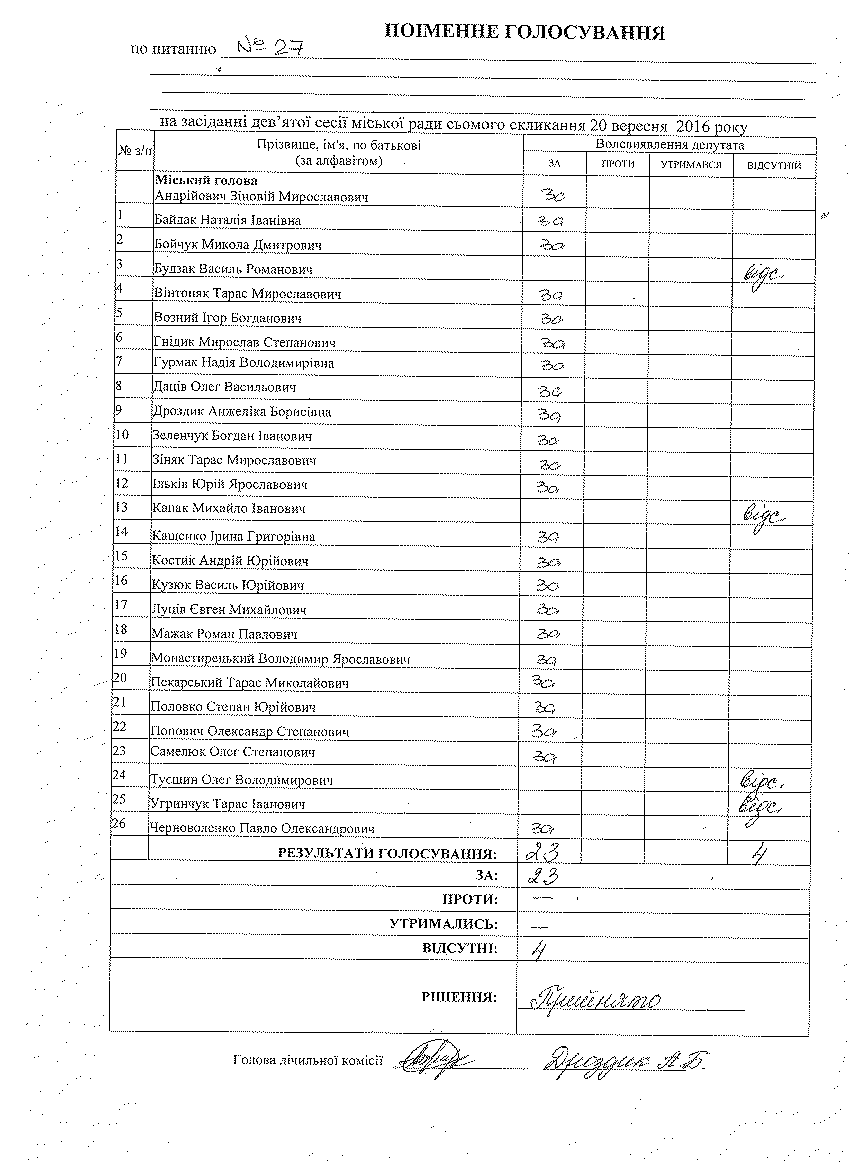 ПОІМЕННЕ ГОЛОСУВАННЯ
по питанню № 27
на засіданні дев’ятої сесії міської ради сьомого скликання 20 вересня 2016 року
№ з/п Прізвище, ім'я, по батькові (за алфавітом) Волевиявлення депутата
ЗА ПРОТИ УТРИМАВСЯ ВІДСУТНІЙ
Міський голова
Андрійович Зіновій Мирославович За
1 Байдак Наталія Іванівна За
2 Бойчук Микола Дмитрович За
3 Будзак Василь Романович відс.
4 Вінтоняк Тарас Мирославович За
5 Возний Ігор Богданович За
6 Гнідик Мирослав Степанович За
7 Гурмак Надія Володимирівна За
8 Даців Олег Васильович За
9 Дроздик Анжеліка Борисівна За
10 Зеленчук Богдан Іванович За
11 Зіняк Тарас Мирославович За
12 Ільків Юрій Ярославович За
13 Капак Михайло Іванович відс.
14 Кащенко Ірина Григорівна За
15 Костик Андрій Юрійович За
16 Кузюк Василь Юрійович За
17 Луців Євген Михайлович За
18 Мажак Роман Павлович За
19 Монастирецький Володимир Ярославович За
20 Пекарський Тарас Миколайович За
21 Половко Степан Юрійович За
22 Попович Олександр Степанович За
23 Самелюк Олег Степанович За
24 Тусшин Олег Володимирович відс.
25 Угринчук Тарас Іванович відс.
26 Черноволенко Павло Олександрович За
РЕЗУЛЬТАТИ ГОЛОСУВАННЯ: 23 4
ЗА: 23
ПРОТИ: —
УТРИМАЛИСЬ: —
ВІДСУТНІ: 4
РІШЕННЯ: Прийнято
Голова лічильної комісії Дроздик А.Б.